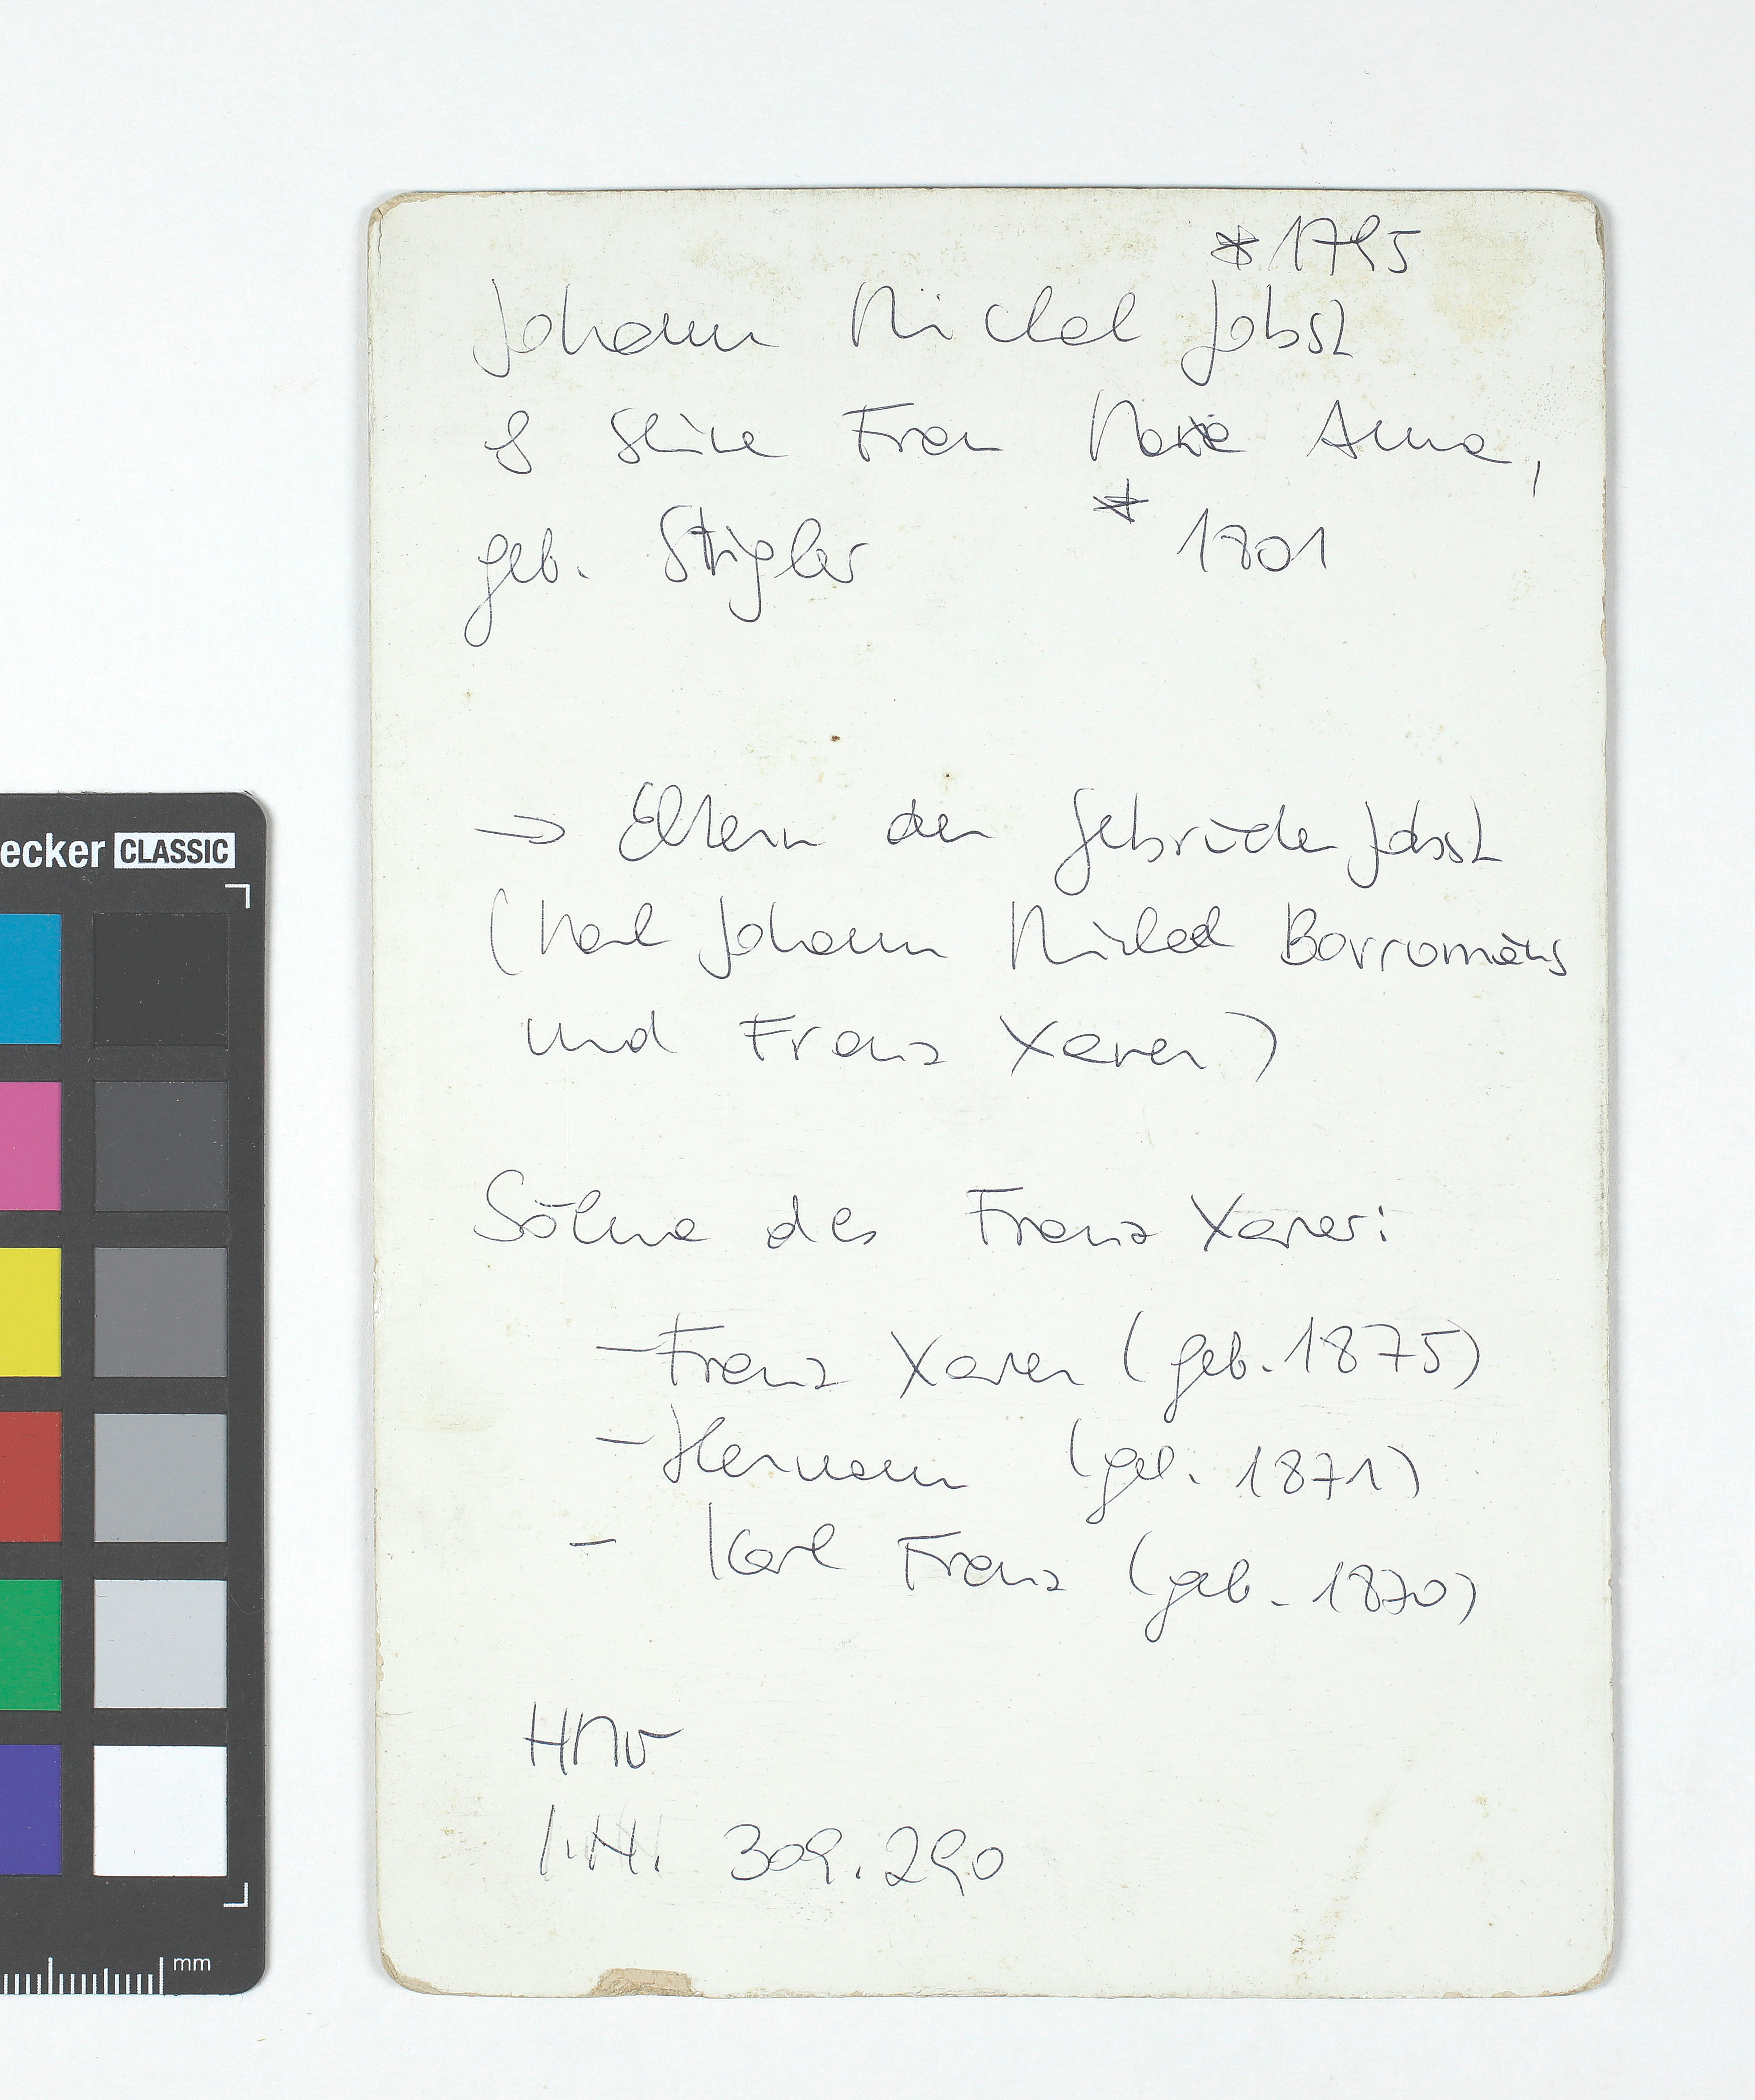 *1795
Johann Michael Jobst
& seine Frau Maria Anna,
geb. Stigler * 1801
→ Eltern der Gebrüder Jobst
(Karl Johann Michael Borromäus
und Franz Xaver)
Söhne des Franz Xaver:
- Franz Xaver (geb. 1875)
- Hermann (geb. 1871)
- Karl Franz (geb. 1870)
HMW
I.N. 309.290
ecker CLASSIC
mm